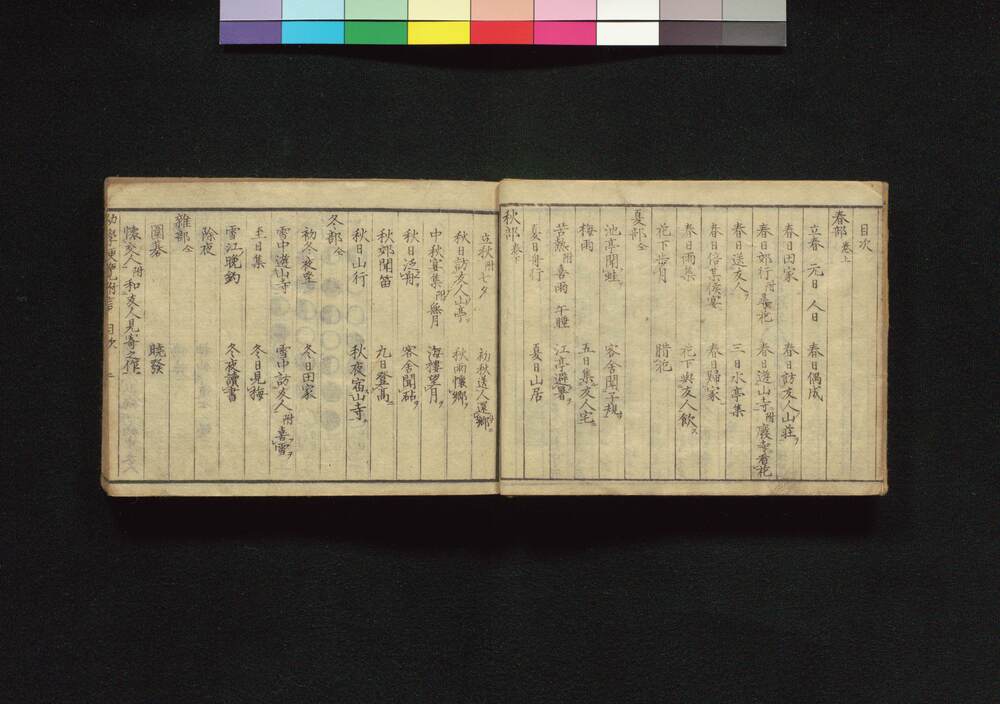 目次
春部 卷上
立春 元日 人日 春日偶成
春日田家 春日訪友人山莊ヲ
春日郊行 附尋花 春日遊山寺 附廢寺看花
春日送友人ヲ 三日水亭集
春日陪某侯宴 春日歸家
春日雨集 花下與友人飲ス
花下步月 腊花
夏部 仝
池亭聞蛙ヲ 客舍聞子規ヲ
梅雨 五日集友人宅ニ
苦熱 附喜雨 午睡 江亭避暑ヲ
夏日舟行 夏日山居
秋部 卷下
立秋 附七夕 初秋送人還郷ヲ
秋日訪友人山亭ヲ 秋雨懷郷ヲ
中秋宴集 附無月 海樓望月ヲ
秋日泛舟ヲ 客舍聞砧ヲ
秋郊聞笛 九日登高ニ
秋日山行 秋夜宿山寺ニ
冬部 仝
初冬夜坐 冬日田家
雪中遊山寺ニ 雪中訪友人 附喜雪ヲ
至日集 冬日見梅ヲ
雪江晩釣 冬夜讀書
除夜
雜部 仝
圍碁 曉發
懷友人ヲ 附和友人見寄之作
幼學 目次 二